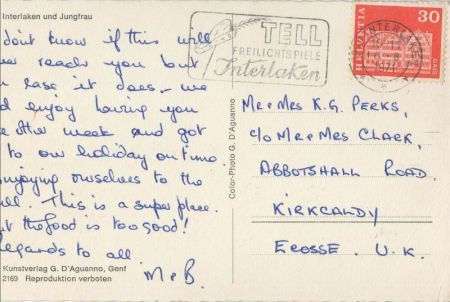 Interlaken und Jungfrau
don't know if this will
reach you but
case it does, we
enjoy having you
other week and got
to our holiday on time.
enjoying ourselves to the
This is a super place.
the food is too good!
regards to all
M & B.
Kunstverlag G. D'Aguanno, Genf
2169 Reproduktion verboten
Color-Photo G. D'Aguanno
TELL
FREILICHTSPIELE
Interlaken
HELVETIA
30
GAIS
INTERLAKEN
Mr & Mrs K.G. PERKS,
c/o Mr & Mrs CLARK,
ABBOTSHALL ROAD.
KIRKCALDY
ECOSSE. U.K.